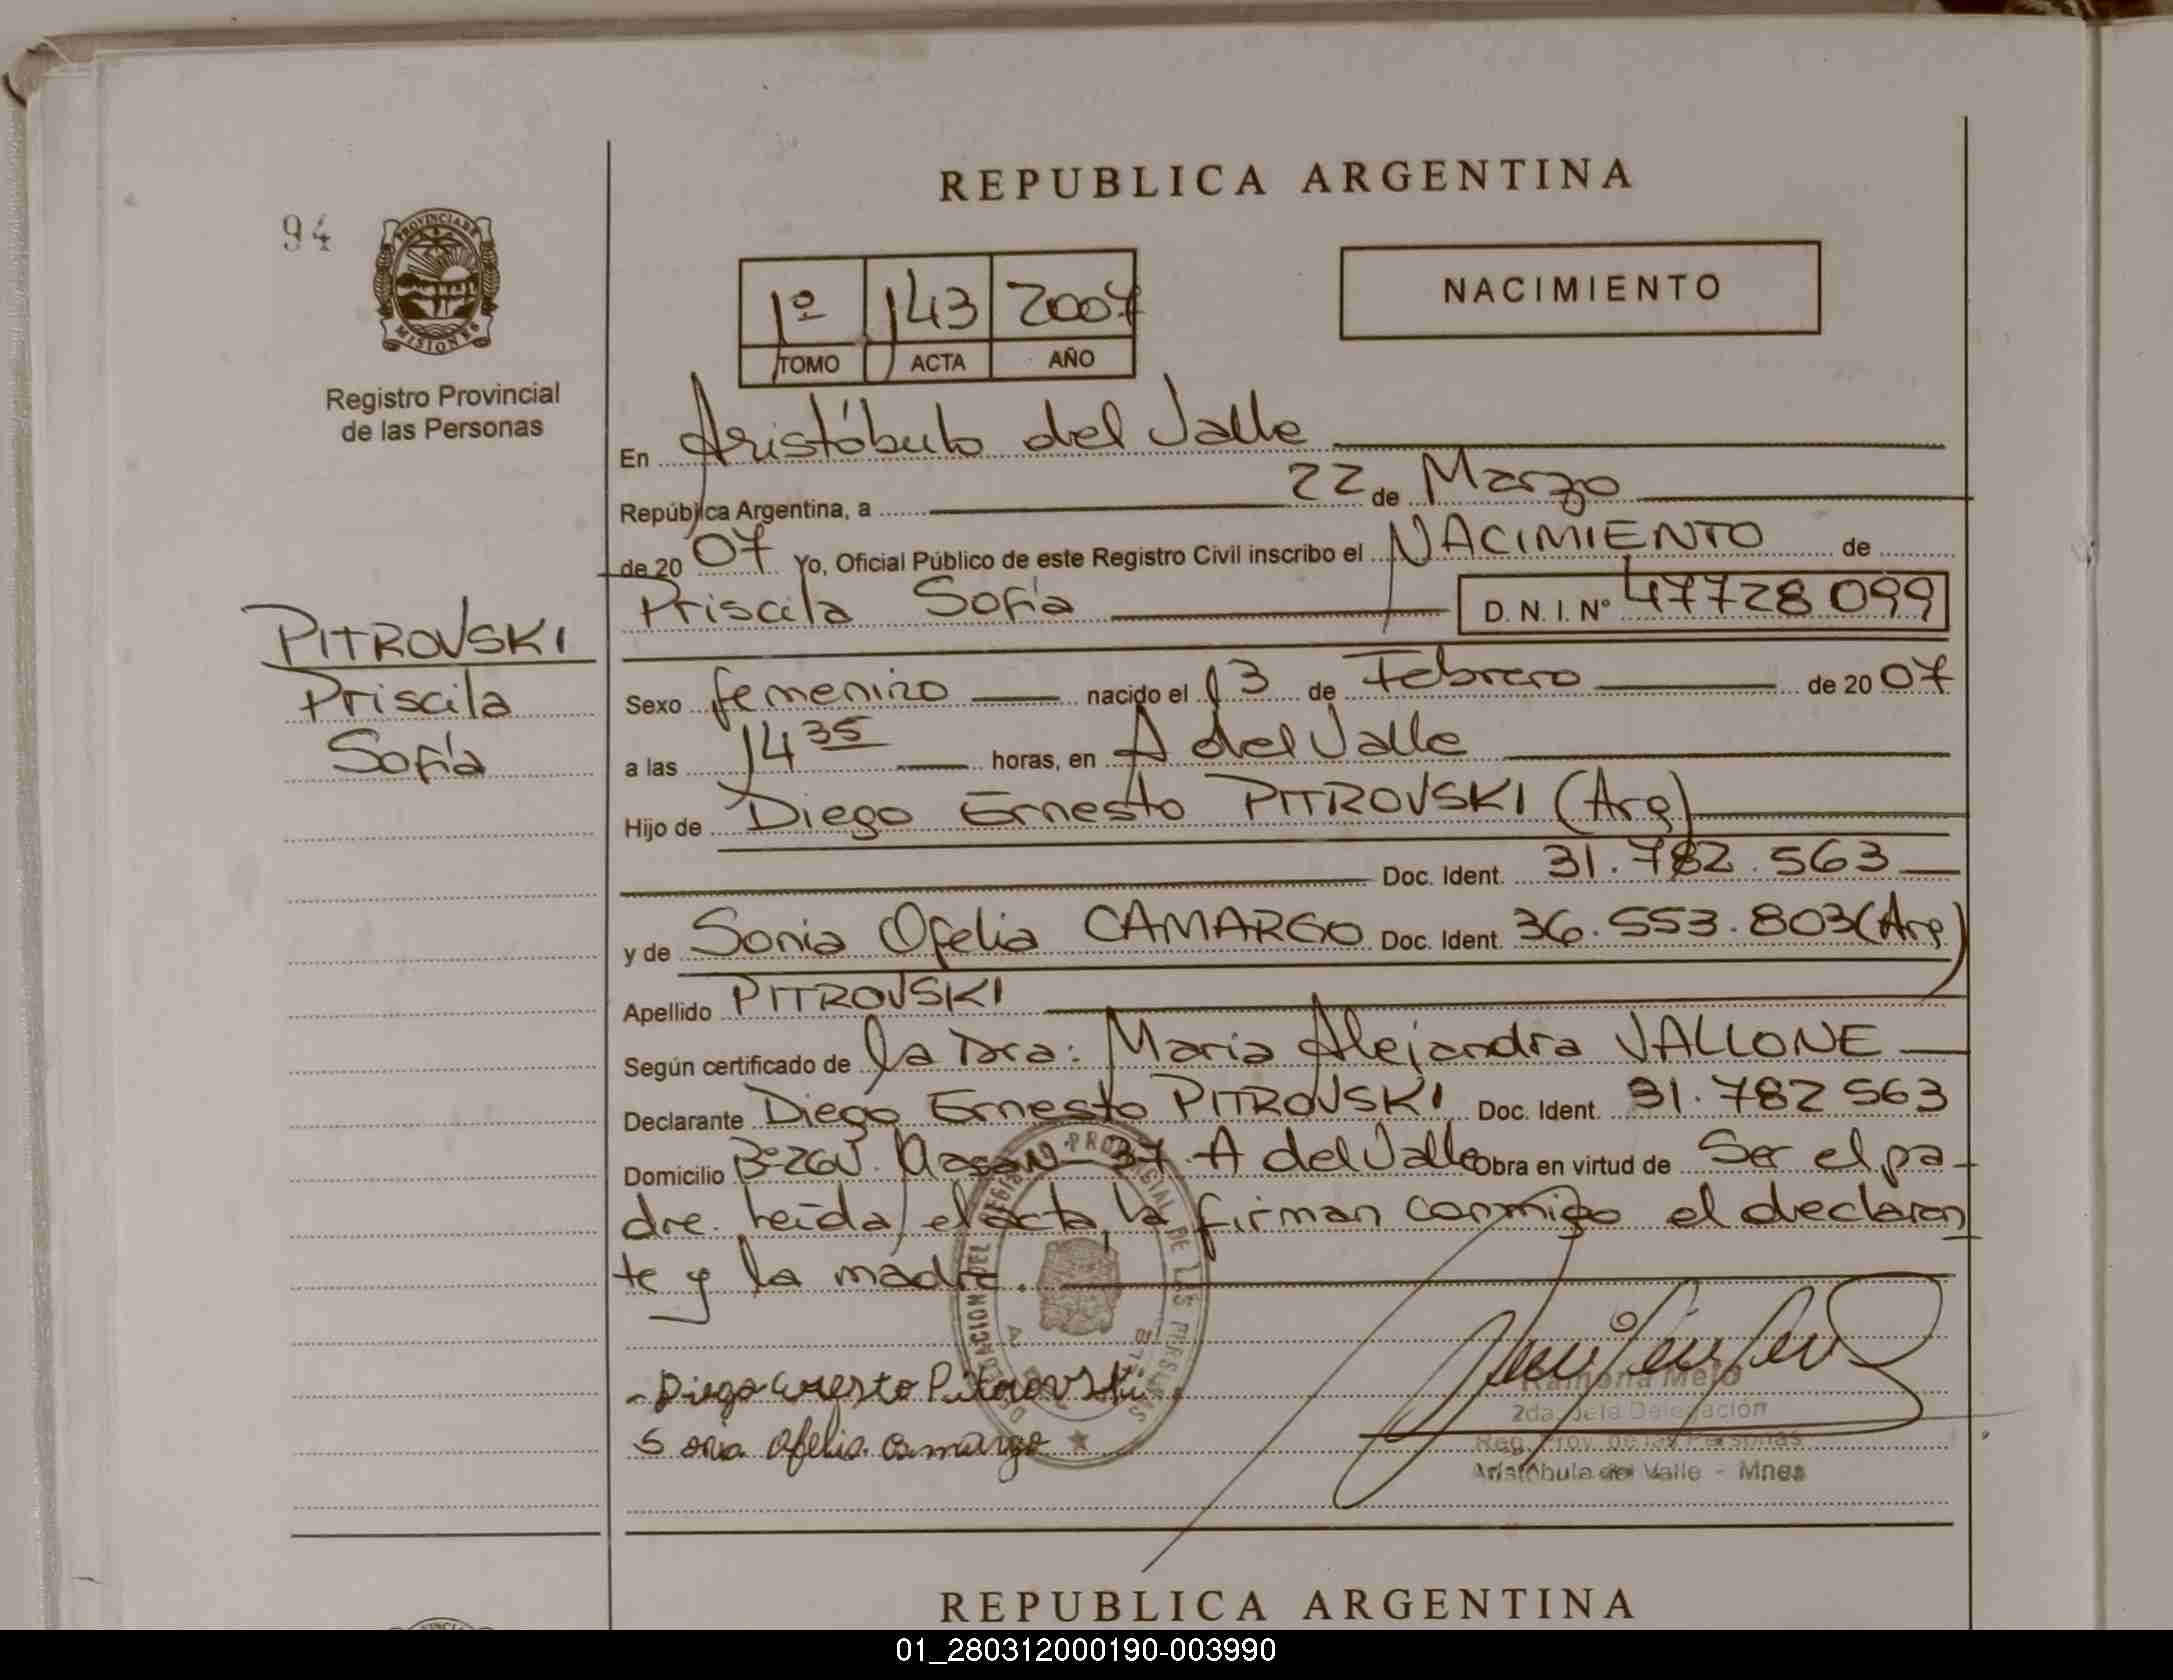 REPUBLICA ARGENTINA
94
PROVINCIA DE
MISIONES
Registro Provincial
de las Personas
1º 143 2007
TOMO ACTA AÑO
NACIMIENTO
En Aristóbulo del Valle
República Argentina, a 22 de Marzo
de 20 07 Yo, Oficial Público de este Registro Civil inscribo el NACIMIENTO de
Priscila Sofía D. N. I. Nº 47728099
PITROVSKI
Priscila
Sofía
Sexo femenino nacido el 13 de Febrero de 20 07
a las 14 35 horas, en A del Valle
Hijo de Diego Ernesto PITROVSKI (Arg)
Doc. Ident. 31.782.563
y de Sonia Ofelia CAMARGO Doc. Ident. 36.553.803 (Arg)
Apellido PITROVSKI
Según certificado de la Dra: Maria Alejandra VALLONE
Declarante Diego Ernesto PITROVSKI Doc. Ident. 31.782 563
Domicilio 37 A del Valle obra en virtud de Ser el pa-
dre. Leída el acta, la firman conmigo el declaran
te y la madre.
DELEGACION DEL REGISTRO PROVINCIAL DE LAS PERSONAS
Diego Ernesto Pitrovski
Sonia Ofelia Camargo
Ramona Melo
2da. Jefa Delegación
Reg. Prov. de las Personas
Aristóbulo del Valle - Mnes
REPUBLICA ARGENTINA
01_280312000190-003990